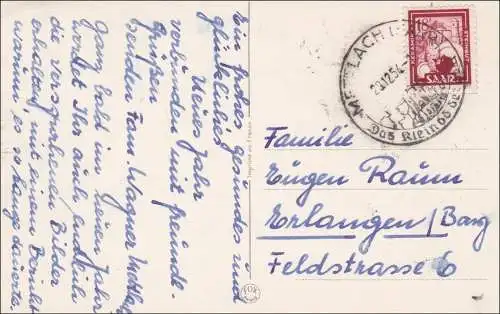 Ein frohes, gesundes und
glückliches
Neues Jahr
verbunden mit freundl.
Grüßen
senden Fam. Wagner
Ganz bald im neuen Jahr
werdet Ihr auch endlich
die versprochenen Bilder
erhalten, mit einem
warum es so lange dauerte.
METTLACH (SAAR)
29.12.54
Das Kleinod der
KERAMIK STEINGUT
SAAR
Familie
Eugen Raum
Erlangen/Bay
Feldstrasse 6
FOX